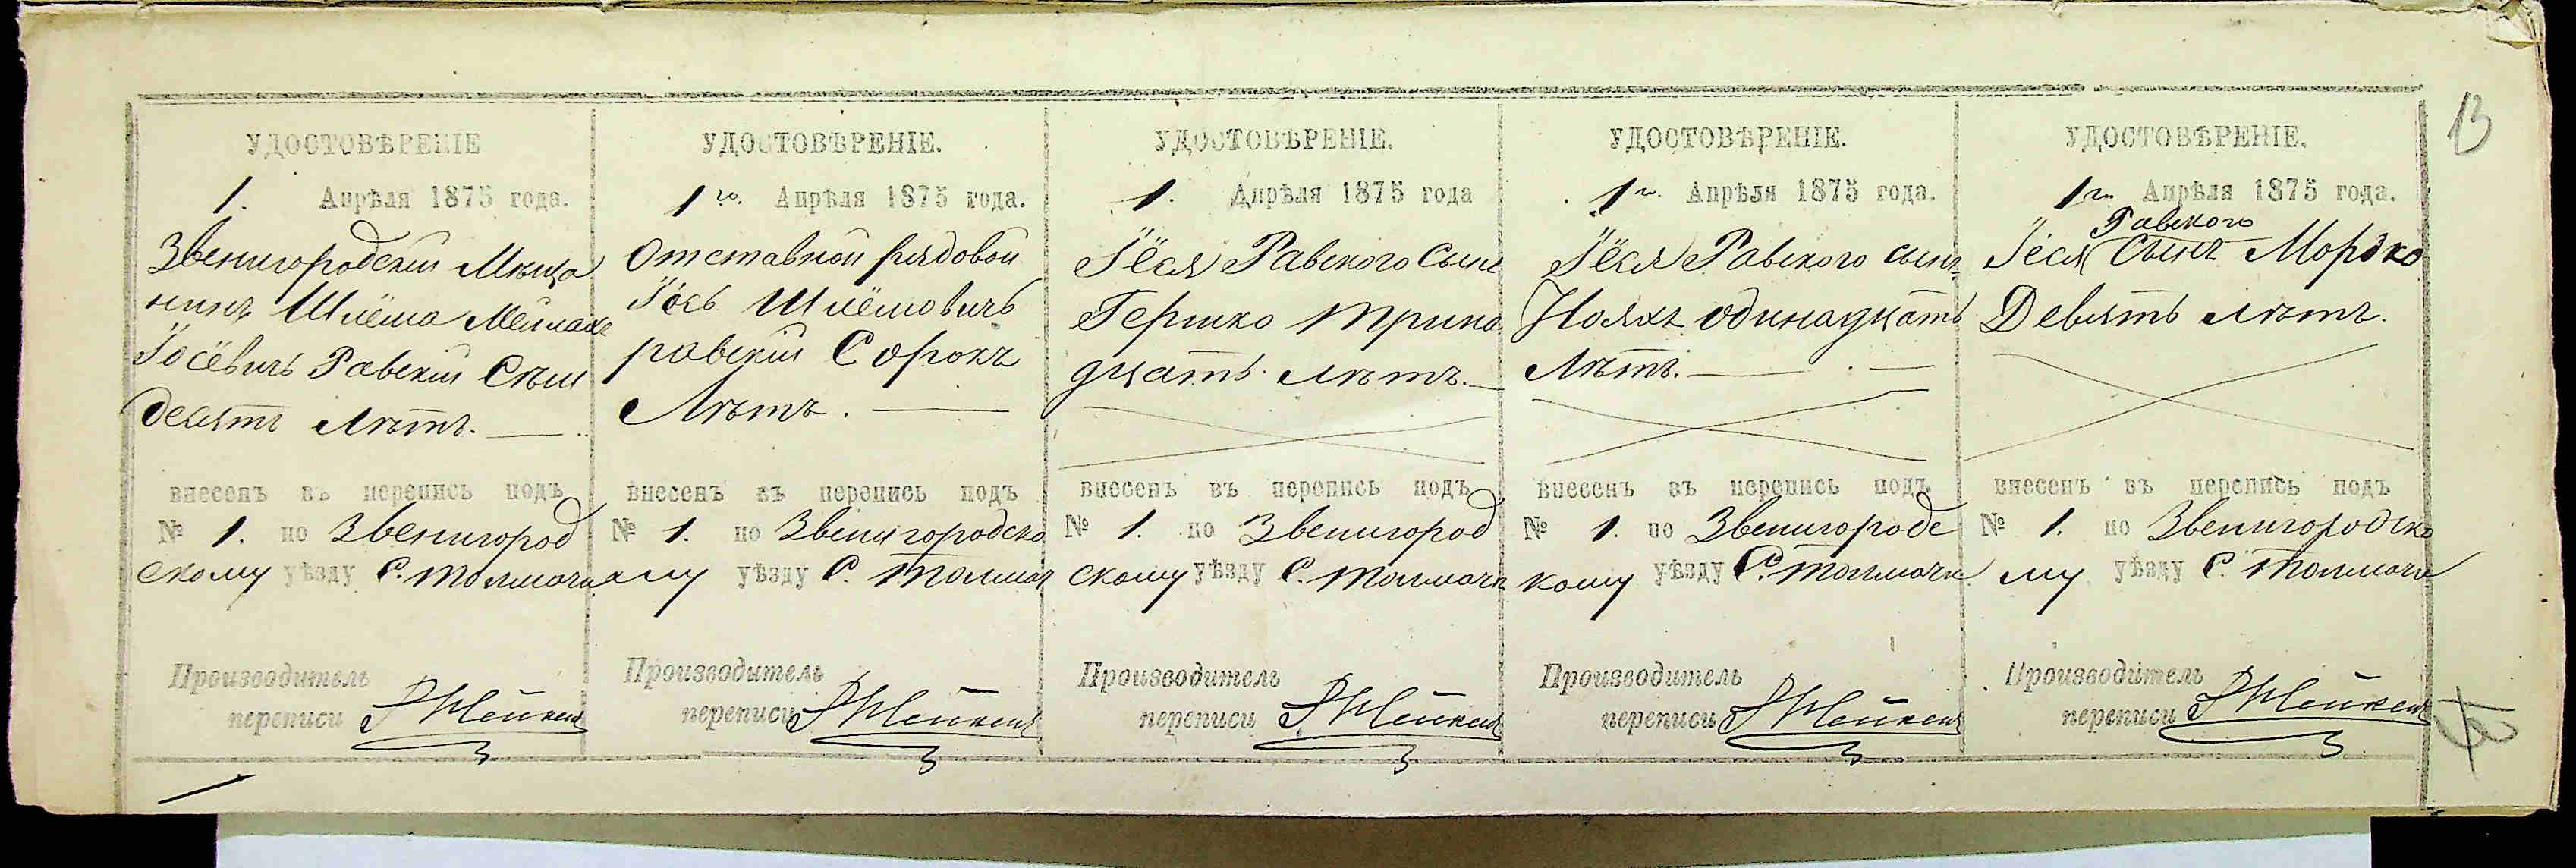 13
УДОСТОВѢРЕНІЕ
1. Апрѣля 1875 года.
Звенигородскій Мѣща
нинъ Шлёма Мейлахъ
Іосёвичъ Равскій Семь
десятъ лѣтъ.
внесенъ въ перепись подъ
№ 1. по Звенигород
скому уѣзду С. Толмачи
Производитель
переписи
УДОСТОВѢРЕНІЕ.
1го. Апрѣля 1875 года.
Отставной рядовой
Іось Шлёмовичъ
равскій Сорокъ
Лѣтъ.
внесенъ въ перепись подъ
№ 1. по Звенигородско
му уѣзду С. Толмач
Производитель
переписи
УДОСТОВѢРЕНІЕ.
1. Апрѣля 1875 года
Іёся Равского сынъ
Гершко трина
дцать лѣтъ.
внесенъ въ перепись подъ
№ 1. по Звенигород
скому уѣзду С. Толмачи
Производитель
переписи
УДОСТОВѢРЕНІЕ.
1го. Апрѣля 1875 года.
Іёся Равского сынъ
Нояхъ одинадцать
Лѣтъ.
внесенъ въ перепись подъ
№ 1. по Звенигородс
кому уѣзду С. Толмачи
Производитель
переписи
УДОСТОВѢРЕНІЕ.
1го. Апрѣля 1875 года.
Равского
Іёся Сынъ Мордко
Девять лѣтъ.
внесенъ въ перепись подъ
№ 1. по Звенигородско
му уѣзду С. Толмачи
Производитель
переписи